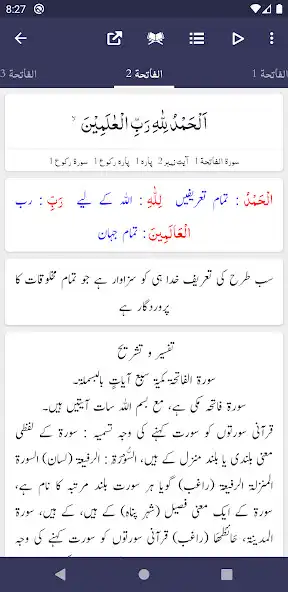 8:27
الفاتحة 1
الفاتحة 2
الفاتحة 3
اَلْحَمْدُ لِلّٰهِ رَبِّ الْعٰلَمِيْنَ ۙ
سورة الفاتحة 1 آیت نمبر 2 پارہ 1 پارہ رکوع 1 سورۃ رکوع 1
الْحَمْدُ : تمام تعریفیں لِلّٰهِ : اللہ کے لیے رَبِّ : رب
الْعَالَمِينَ : تمام جہان
سب طرح کی تعریف خدا ہی کو سزاوار ہے جو تمام مخلوقات کا
پروردگار ہے
تفسیر و تشریح
سورة الفاتحة مکیة سبع آیاتٍ بالبسملة۔
سورۃ فاتحہ مکی ہے، مع بسم اللہ سات آیتیں ہیں۔
قرآنی سورتوں کو سورت کہنے کی وجہ تسمیہ : سورۃ کے لفظی
معنی بلندی یا بلند منزل کے ہیں، السُّوْرَۃ : الرفیعۃ (لسان) السورۃ
المنزلۃ الرفیعۃ (راغب) گویا ہر سورت بلند مرتبہ کا نام ہے،
سورۃ کے ایک معنی فصیل (شہر پناہ) کے ہیں، کے ہیں، سورۃ
المدینۃ، حَائطُھَا (راغب) قرآنی سورتوں کو سورت کہنے کی وجہ